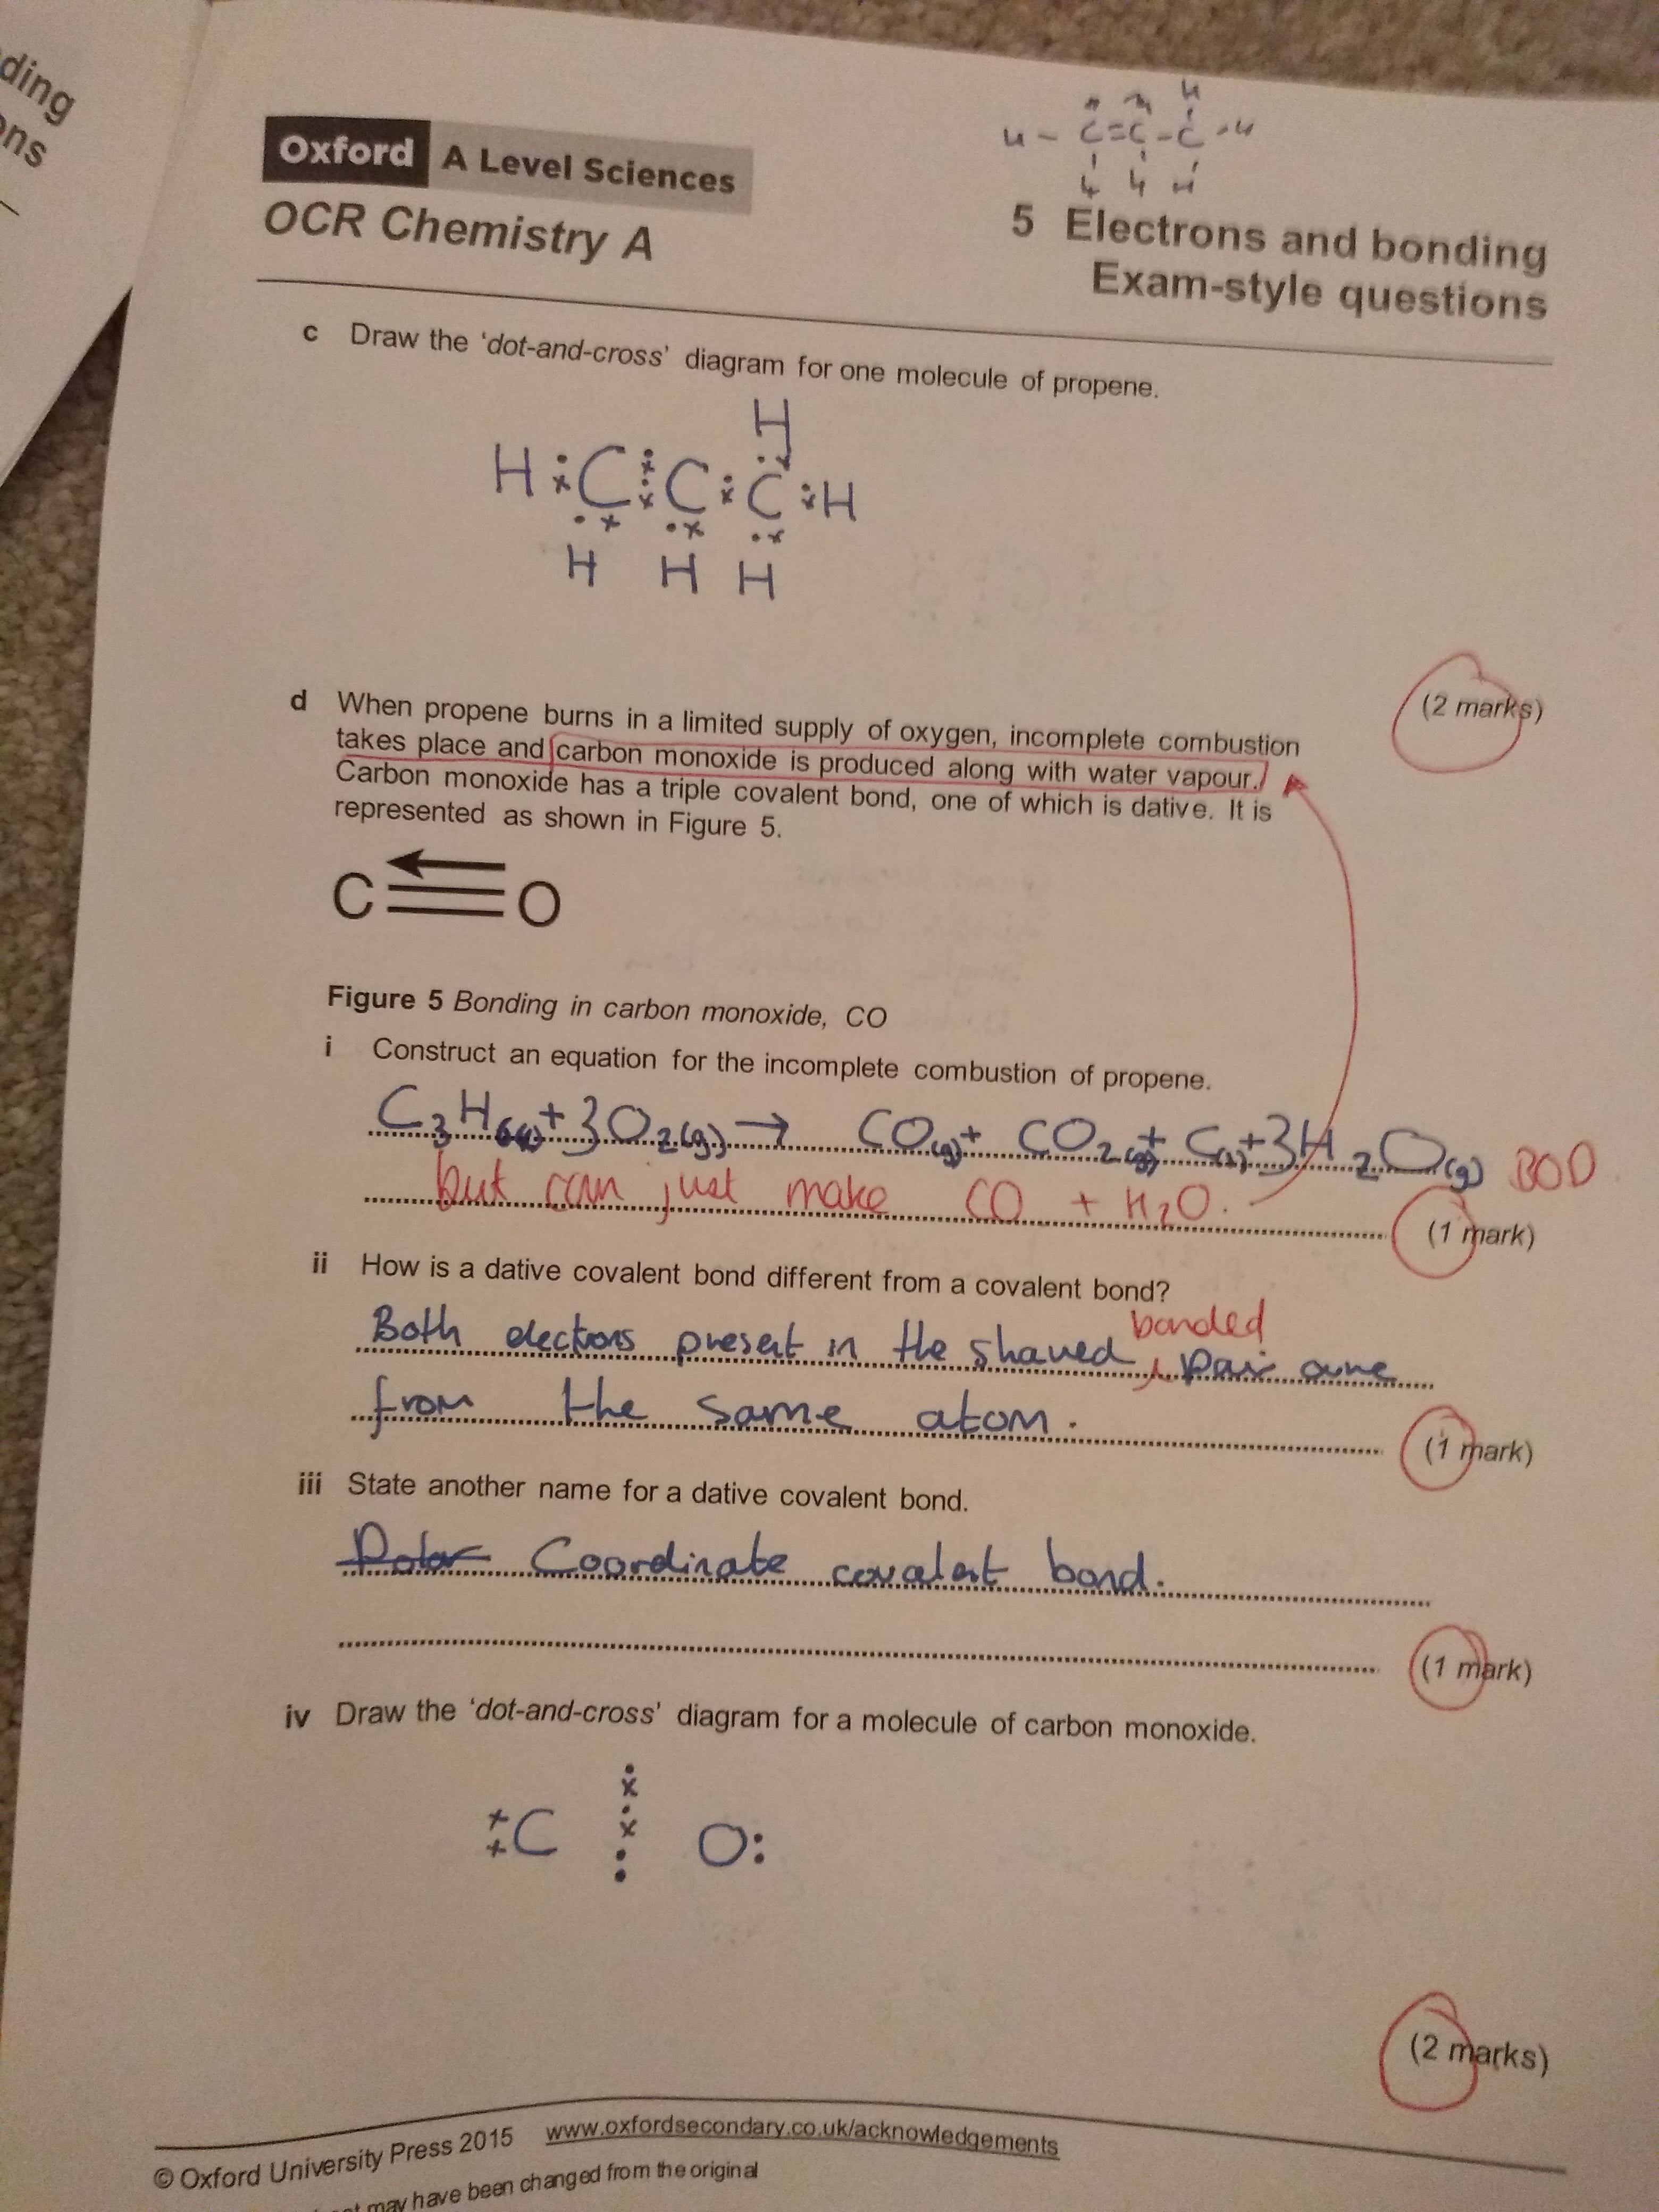 ding
ons
H H H
H - C = C - C - H
H H H
Oxford A Level Sciences
OCR Chemistry A
5 Electrons and bonding
Exam-style questions
c Draw the ‘dot-and-cross’ diagram for one molecule of propene.
H
H : C :: C : C : H
H H H
(2 marks)
d When propene burns in a limited supply of oxygen, incomplete combustion
takes place and carbon monoxide is produced along with water vapour.
Carbon monoxide has a triple covalent bond, one of which is dative. It is
represented as shown in Figure 5.
C O
Figure 5 Bonding in carbon monoxide, CO
i Construct an equation for the incomplete combustion of propene.
C3H6(g) + 3O2(g) → CO(g) + CO2(g) + C(s) + 3H2O(g) BOD
but can just make CO + H2O.
(1 mark)
ii How is a dative covalent bond different from a covalent bond?
bonded
Both electrons present in the shared pair are
from the same atom.
(1 mark)
iii State another name for a dative covalent bond.
Polar Coordinate covalent bond.
(1 mark)
iv Draw the ‘dot-and-cross’ diagram for a molecule of carbon monoxide.
C O:
(2 marks)
© Oxford University Press 2015 www.oxfordsecondary.co.uk/acknowledgements
may have been changed from the original